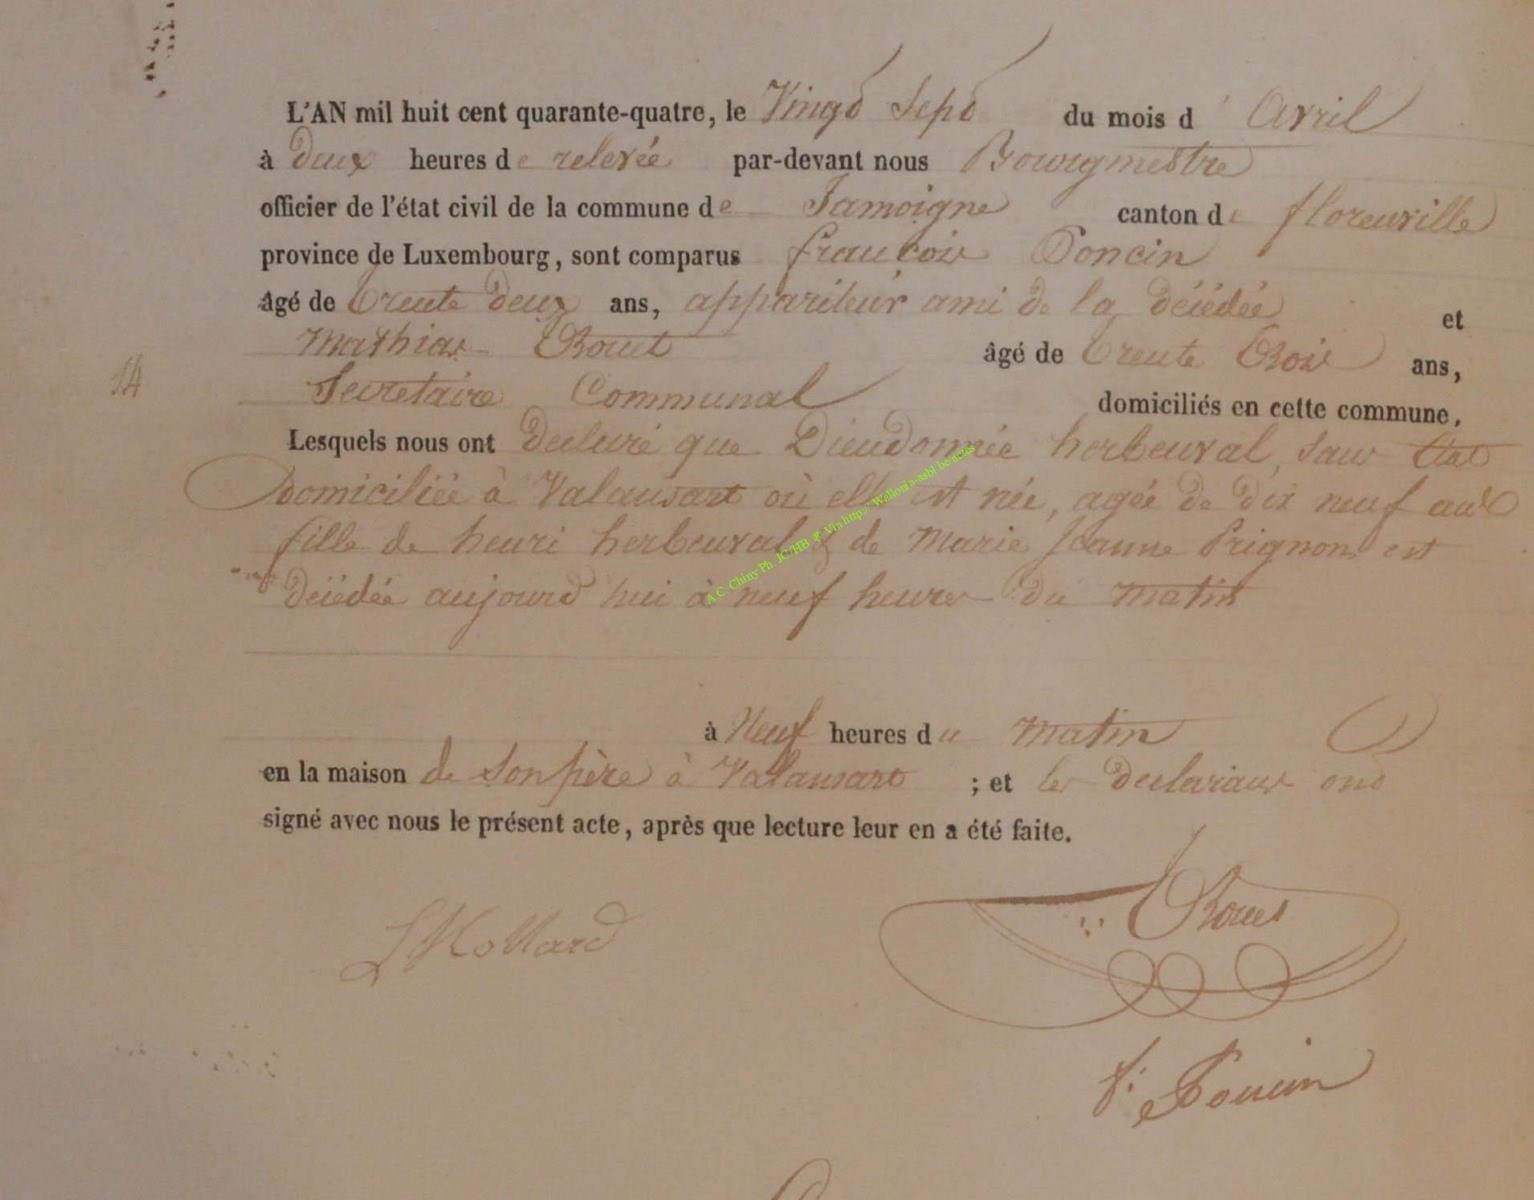 L'AN mil huit cent quarante-quatre, le Vingt Sept du mois d' Avril
à deux heures de relevée par-devant nous Bourgmestre
officier de l'état civil de la commune de Jamoigne canton de florenville
province de Luxembourg, sont comparus françois Poncin
âgé de trente deux ans, appariteur ami de la décédée et
Mathias âgé de trente trois ans,
14
Secretaire Communal domiciliés en cette commune.
Lesquels nous ont declaré que Dieudonnée herbeuval, sans état
Domiciliée à Valansart où elle est née, agée de dix neuf ans
fille de henri herbeuval & de Marie Jeanne Prignon est
décédée aujourd'hui à neuf heures du matin
A.C. Chiny Ph. JC/HB
à Neuf heures du matin
en la maison de son père à Valansart ; et les declarans ont
signé avec nous le présent acte, après que lecture leur en a été faite.
f: Poncin